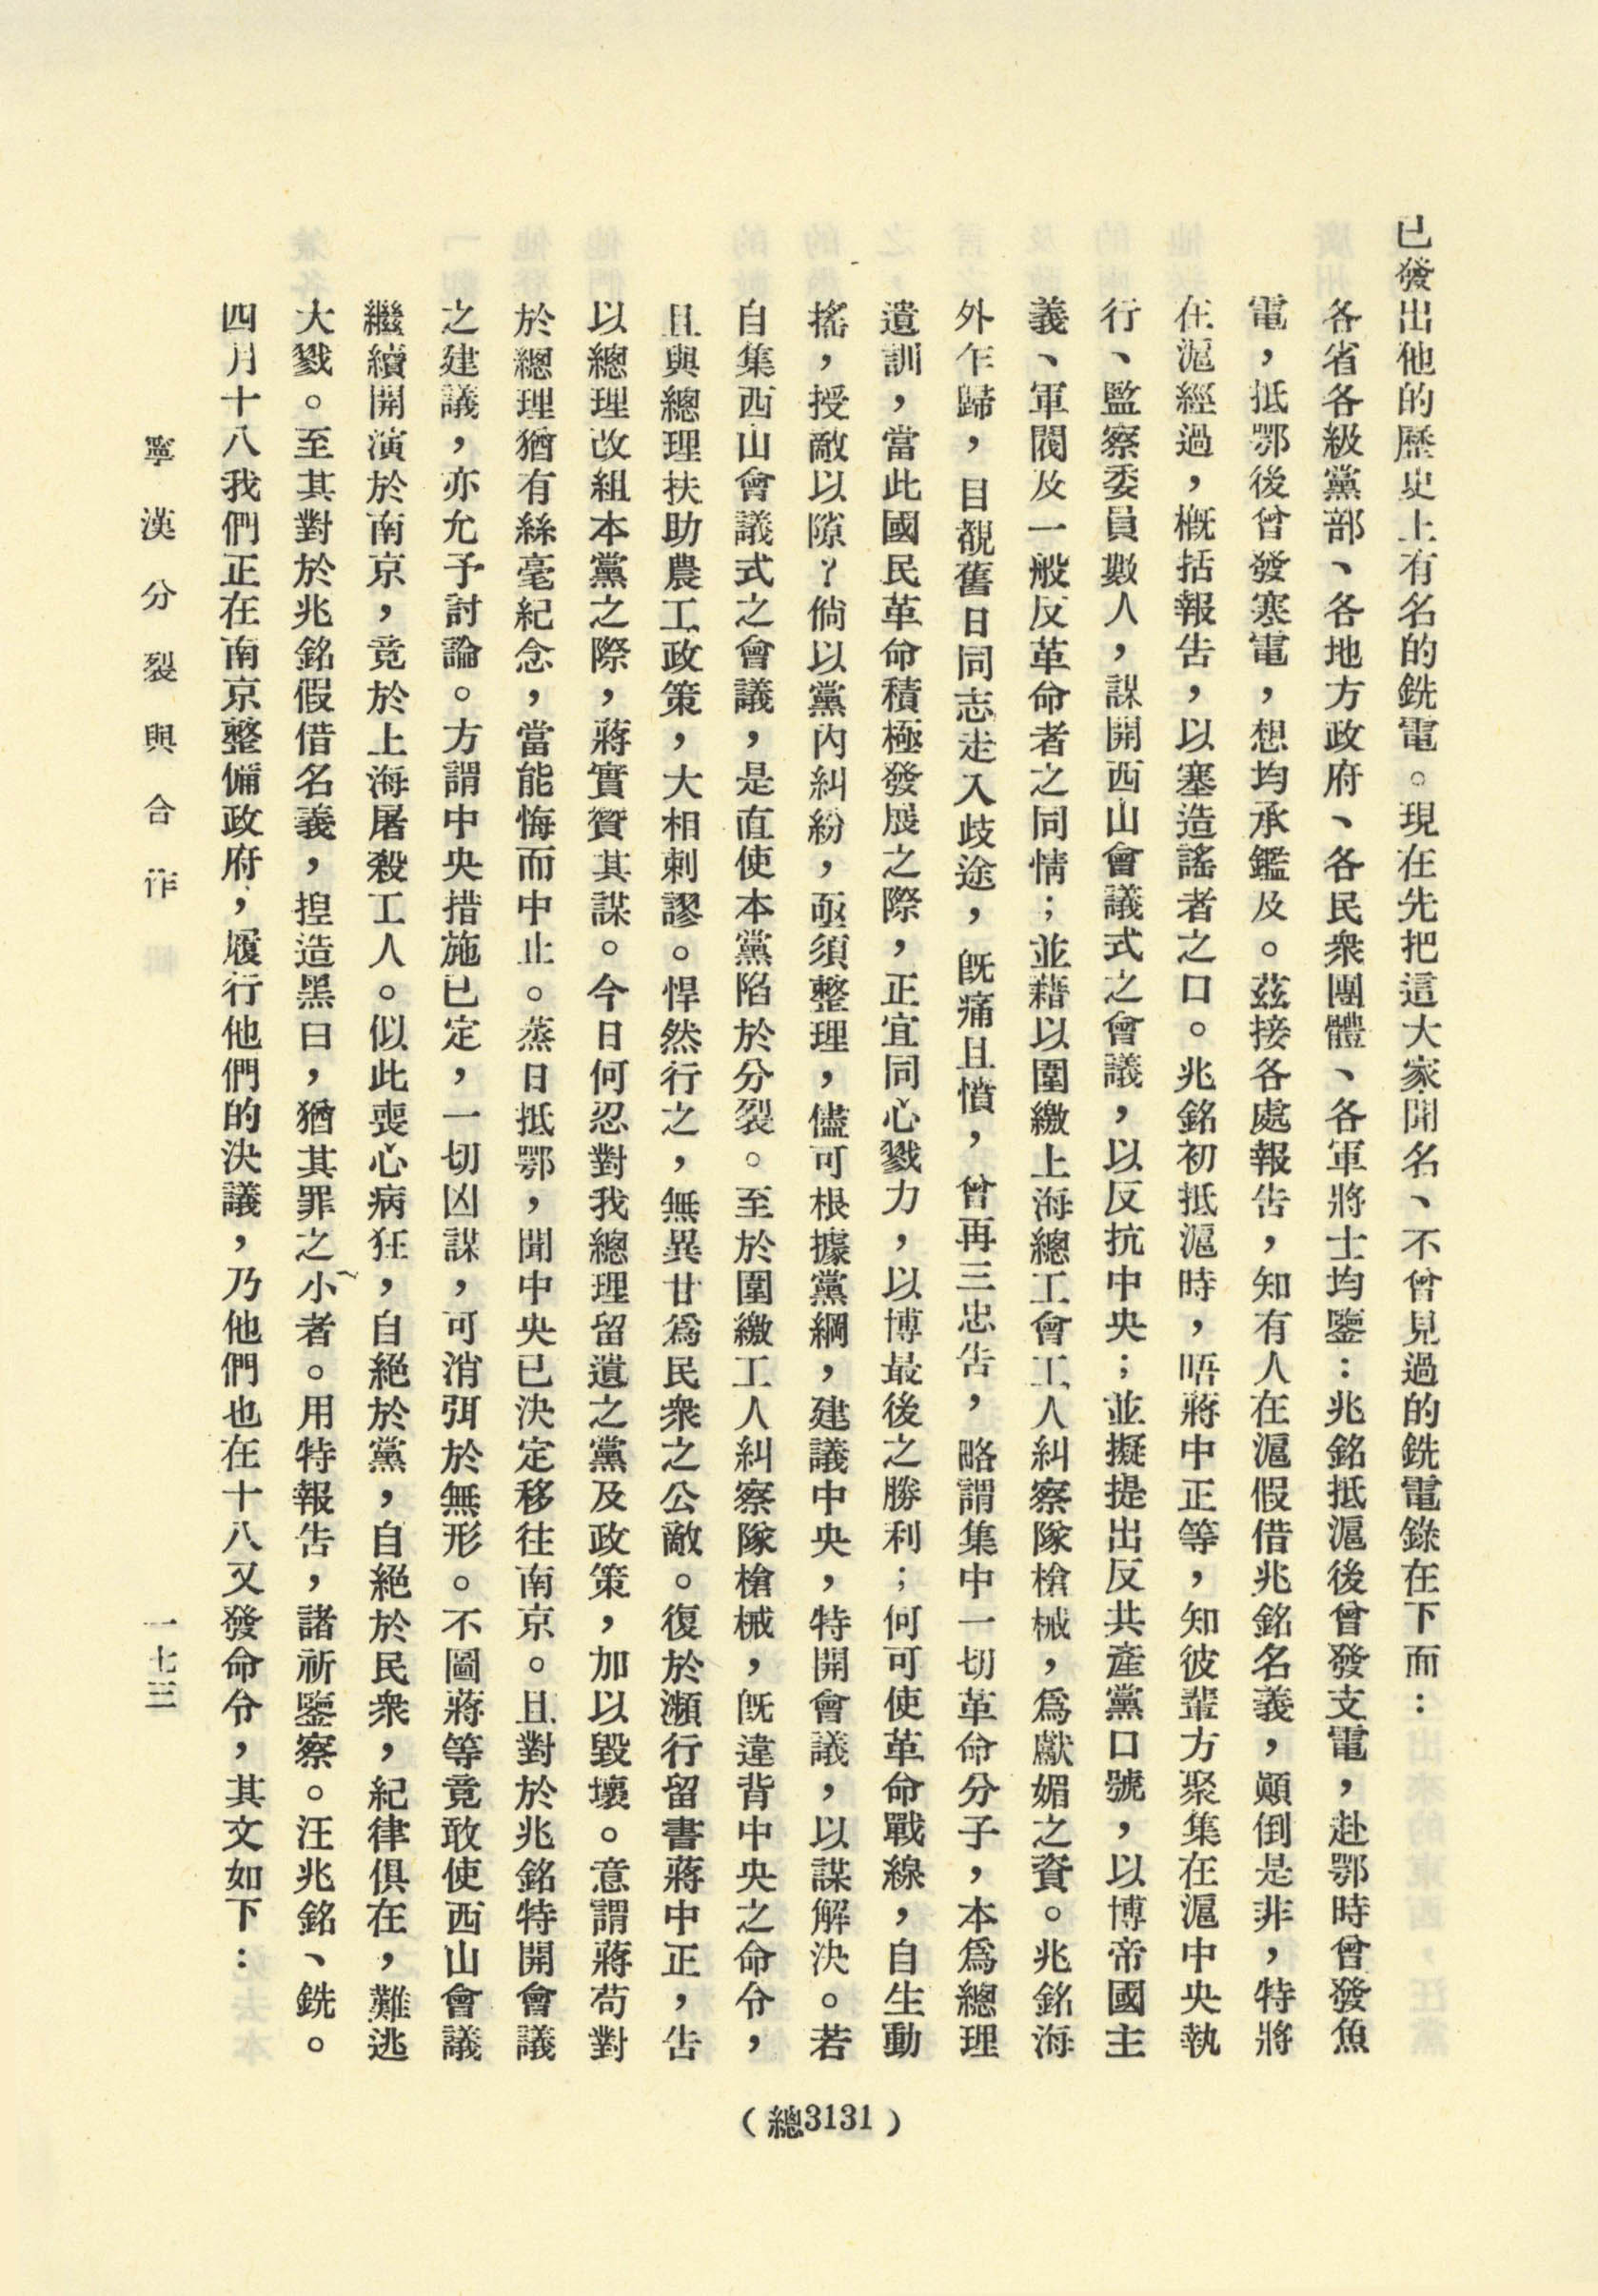 已發出他的歷史上有名的銑電。現在先把這大家聞名、不曾見過的銑電錄在下面：
各省各級黨部、各地方政府、各民衆團體、各軍將士均鑒：兆銘抵滬後曾發支電，赴鄂時曾發魚
電，抵鄂後曾發寒電，想均承鑑及。茲接各處報告，知有人在滬假借兆銘名義，顚倒是非，特將
在滬經過，概括報告，以塞造謠者之口。兆銘初抵滬時，晤蔣中正等，知彼輩方聚集在滬中央執
行、監察委員數人，謀開西山會議式之會議，以反抗中央；並擬提出反共產黨口號，以博帝國主
義、軍閥及一般反革命者之同情；並藉以圍繳上海總工會工人糾察隊槍械，爲獻媚之資。兆銘海
外乍歸，目覩舊日同志走入歧途，旣痛且憤，曾再三忠告，略謂集中一切革命分子，本爲總理
遺訓，當此國民革命積極發展之際，正宜同心戮力，以博最後之勝利；何可使革命戰線，自生動
搖，授敵以隙？倘以黨內糾紛，亟須整理，儘可根據黨綱，建議中央，特開會議，以謀解決。若
自集西山會議式之會議，是直使本黨陷於分裂。至於圍繳工人糾察隊槍械，旣違背中央之命令，
且與總理扶助農工政策，大相刺謬。悍然行之，無異甘爲民衆之公敵。復於瀕行留書蔣中正，告
以總理改組本黨之際，蔣實贊其謀。今日何忍對我總理留遺之黨及政策，加以毀壞。意謂蔣苟對
於總理猶有絲毫紀念，當能悔而中止。蒸日抵鄂，聞中央已決定移往南京。且對於兆銘特開會議
之建議，亦允予討論。方謂中央措施已定，一切凶謀，可消弭於無形。不圖蔣等竟敢使西山會議
繼續開演於南京，竟於上海屠殺工人。似此喪心病狂，自絕於黨，自絕於民衆，紀律俱在，難逃
大戮。至其對於兆銘假借名義，揑造黑白，猶其罪之小者。用特報告，諸祈鑒察。汪兆銘、銑。
四月十八我們正在南京整備政府，履行他們的決議，乃他們也在十八又發命令，其文如下：
寧漢分裂與合作
一七三
（總3131）